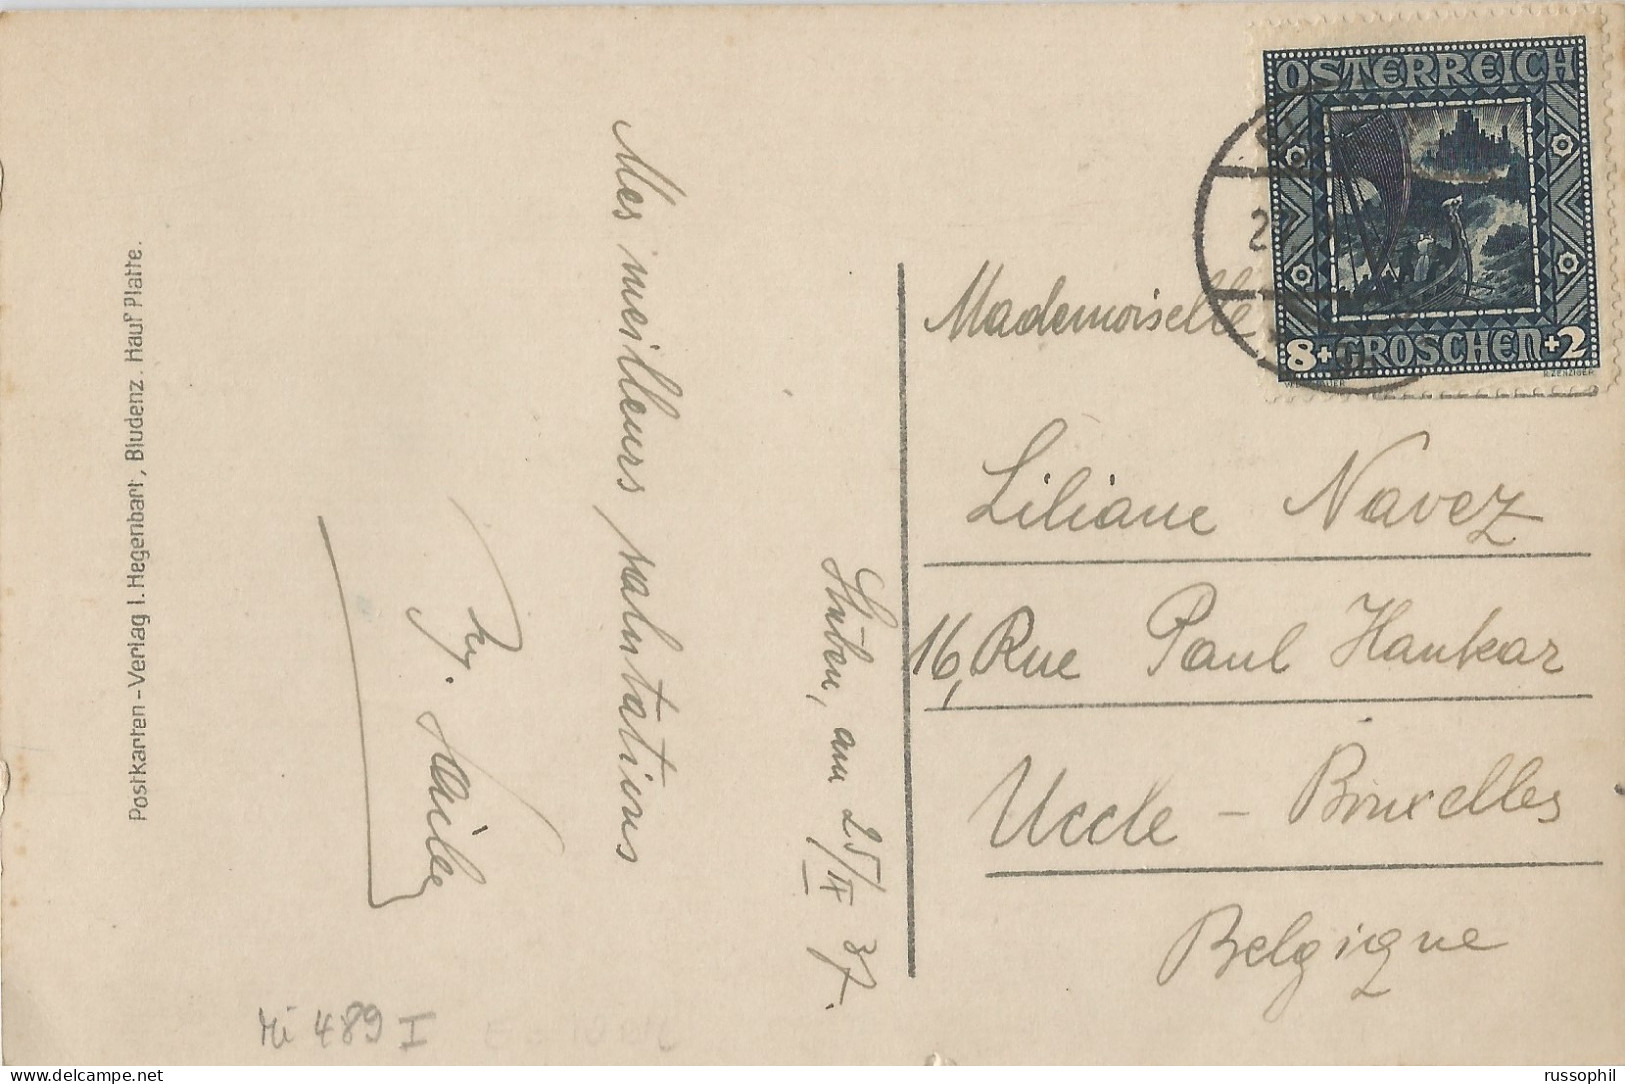 ÖSTERREICH
8+ GROSCHEN +2
R.ZENZIGER
Mademoiselle
Liliane Navez
16, Rue Paul Hankar
Uccle - Bruxelles
Belgique
Stuben, am 25/IX 37.
Mes meilleurs salutations
Postkarten-Verlag I. Hegenbart, Bludenz. Hauf Platte.
Mi 489 I
russophil
www.delcampe.net